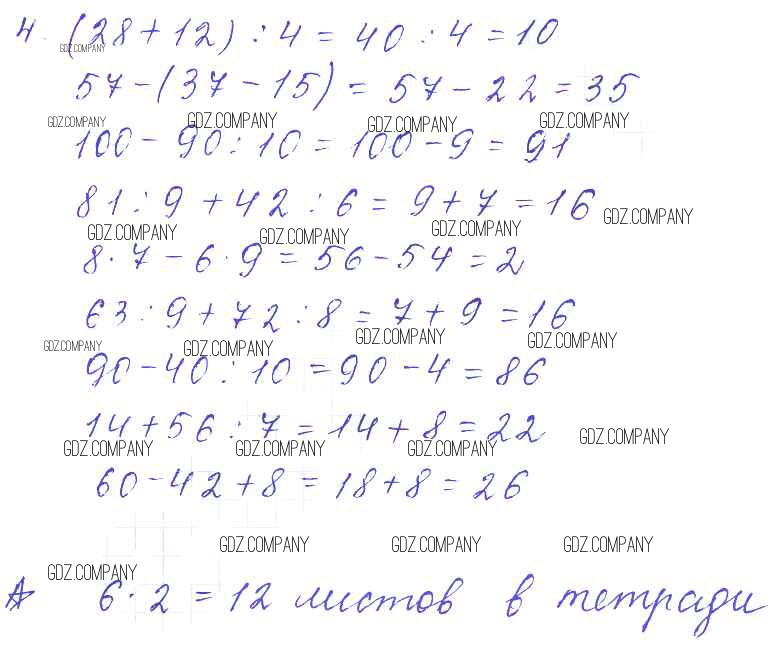 4. (28 + 12) : 4 = 40 : 4 = 10
GDZ.COMPANY
57 - (37 - 15) = 57 - 22 = 35
GDZ.COMPANY GDZ.COMPANY GDZ.COMPANY GDZ.COMPANY
100 - 90 : 10 = 100 - 9 = 91
81 : 9 + 42 : 6 = 9 + 7 = 16 GDZ.COMPANY
GDZ.COMPANY GDZ.COMPANY GDZ.COMPANY
8 · 7 - 6 · 9 = 56 - 54 = 2
63 : 9 + 72 : 8 = 7 + 9 = 16
GDZ.COMPANY GDZ.COMPANY GDZ.COMPANY GDZ.COMPANY
90 - 40 : 10 = 90 - 4 = 86
14 + 56 : 7 = 14 + 8 = 22
GDZ.COMPANY GDZ.COMPANY GDZ.COMPANY GDZ.COMPANY
60 - 42 + 8 = 18 + 8 = 26
GDZ.COMPANY GDZ.COMPANY GDZ.COMPANY
GDZ.COMPANY
6 · 2 = 12 листов в тетради